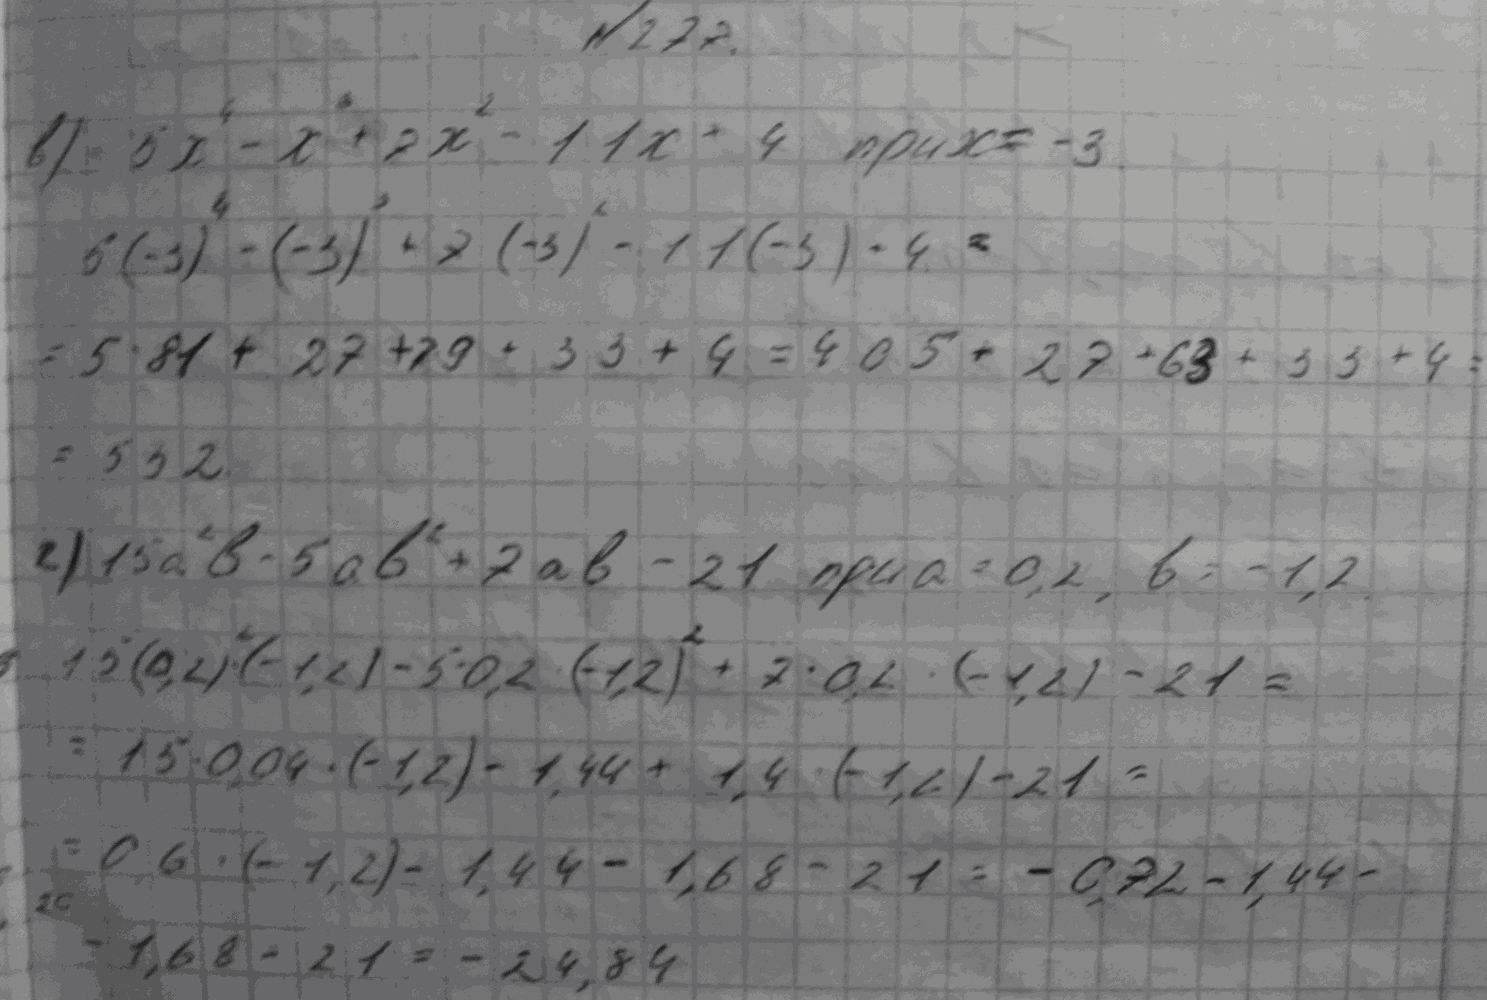 №277.
в) 5x⁴ - x³ + 7x² - 11x + 4 при x = -3.
5(-3)⁴ - (-3)³ + 7(-3)² - 11(-3) + 4 =
= 5·81 + 27 + 7·9 + 33 + 4 = 405 + 27 + 63 + 33 + 4 =
= 532.
г) 15a²b - 5ab² + 7ab - 21 при a = 0,2, b = -1,2.
15(0,2)²·(-1,2) - 5·0,2·(-1,2)² + 7·0,2·(-1,2) - 21 =
= 15·0,04·(-1,2) - 1,44 + 1,4·(-1,2) - 21 =
= 0,6·(-1,2) - 1,44 - 1,68 - 21 = -0,72 - 1,44 -
- 1,68 - 21 = -24,84